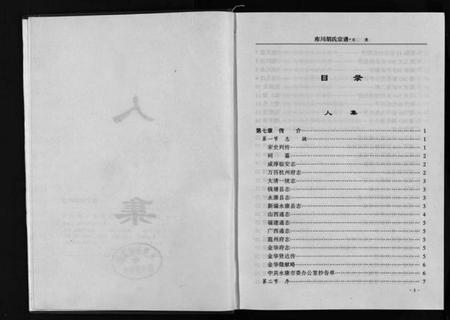 人
集
库川胡氏宗谱·人 集
目 录
人 集
第七章 传 介 1
第一节 志 摘 1
宋史列传 1
祠 墓 2
咸淳临安志 2
万历杭州府志 2
大清一统志 2
钱塘县志 3
永康县志 3
新编永康县志 3
山西通志 4
福建通志 5
广西通志 5
温州府志 5
金华府志 5
金华贤达传 5
金华徵献略 6
中共永康市委办公室抄告单 6
第二节 序 7
· 1 ·